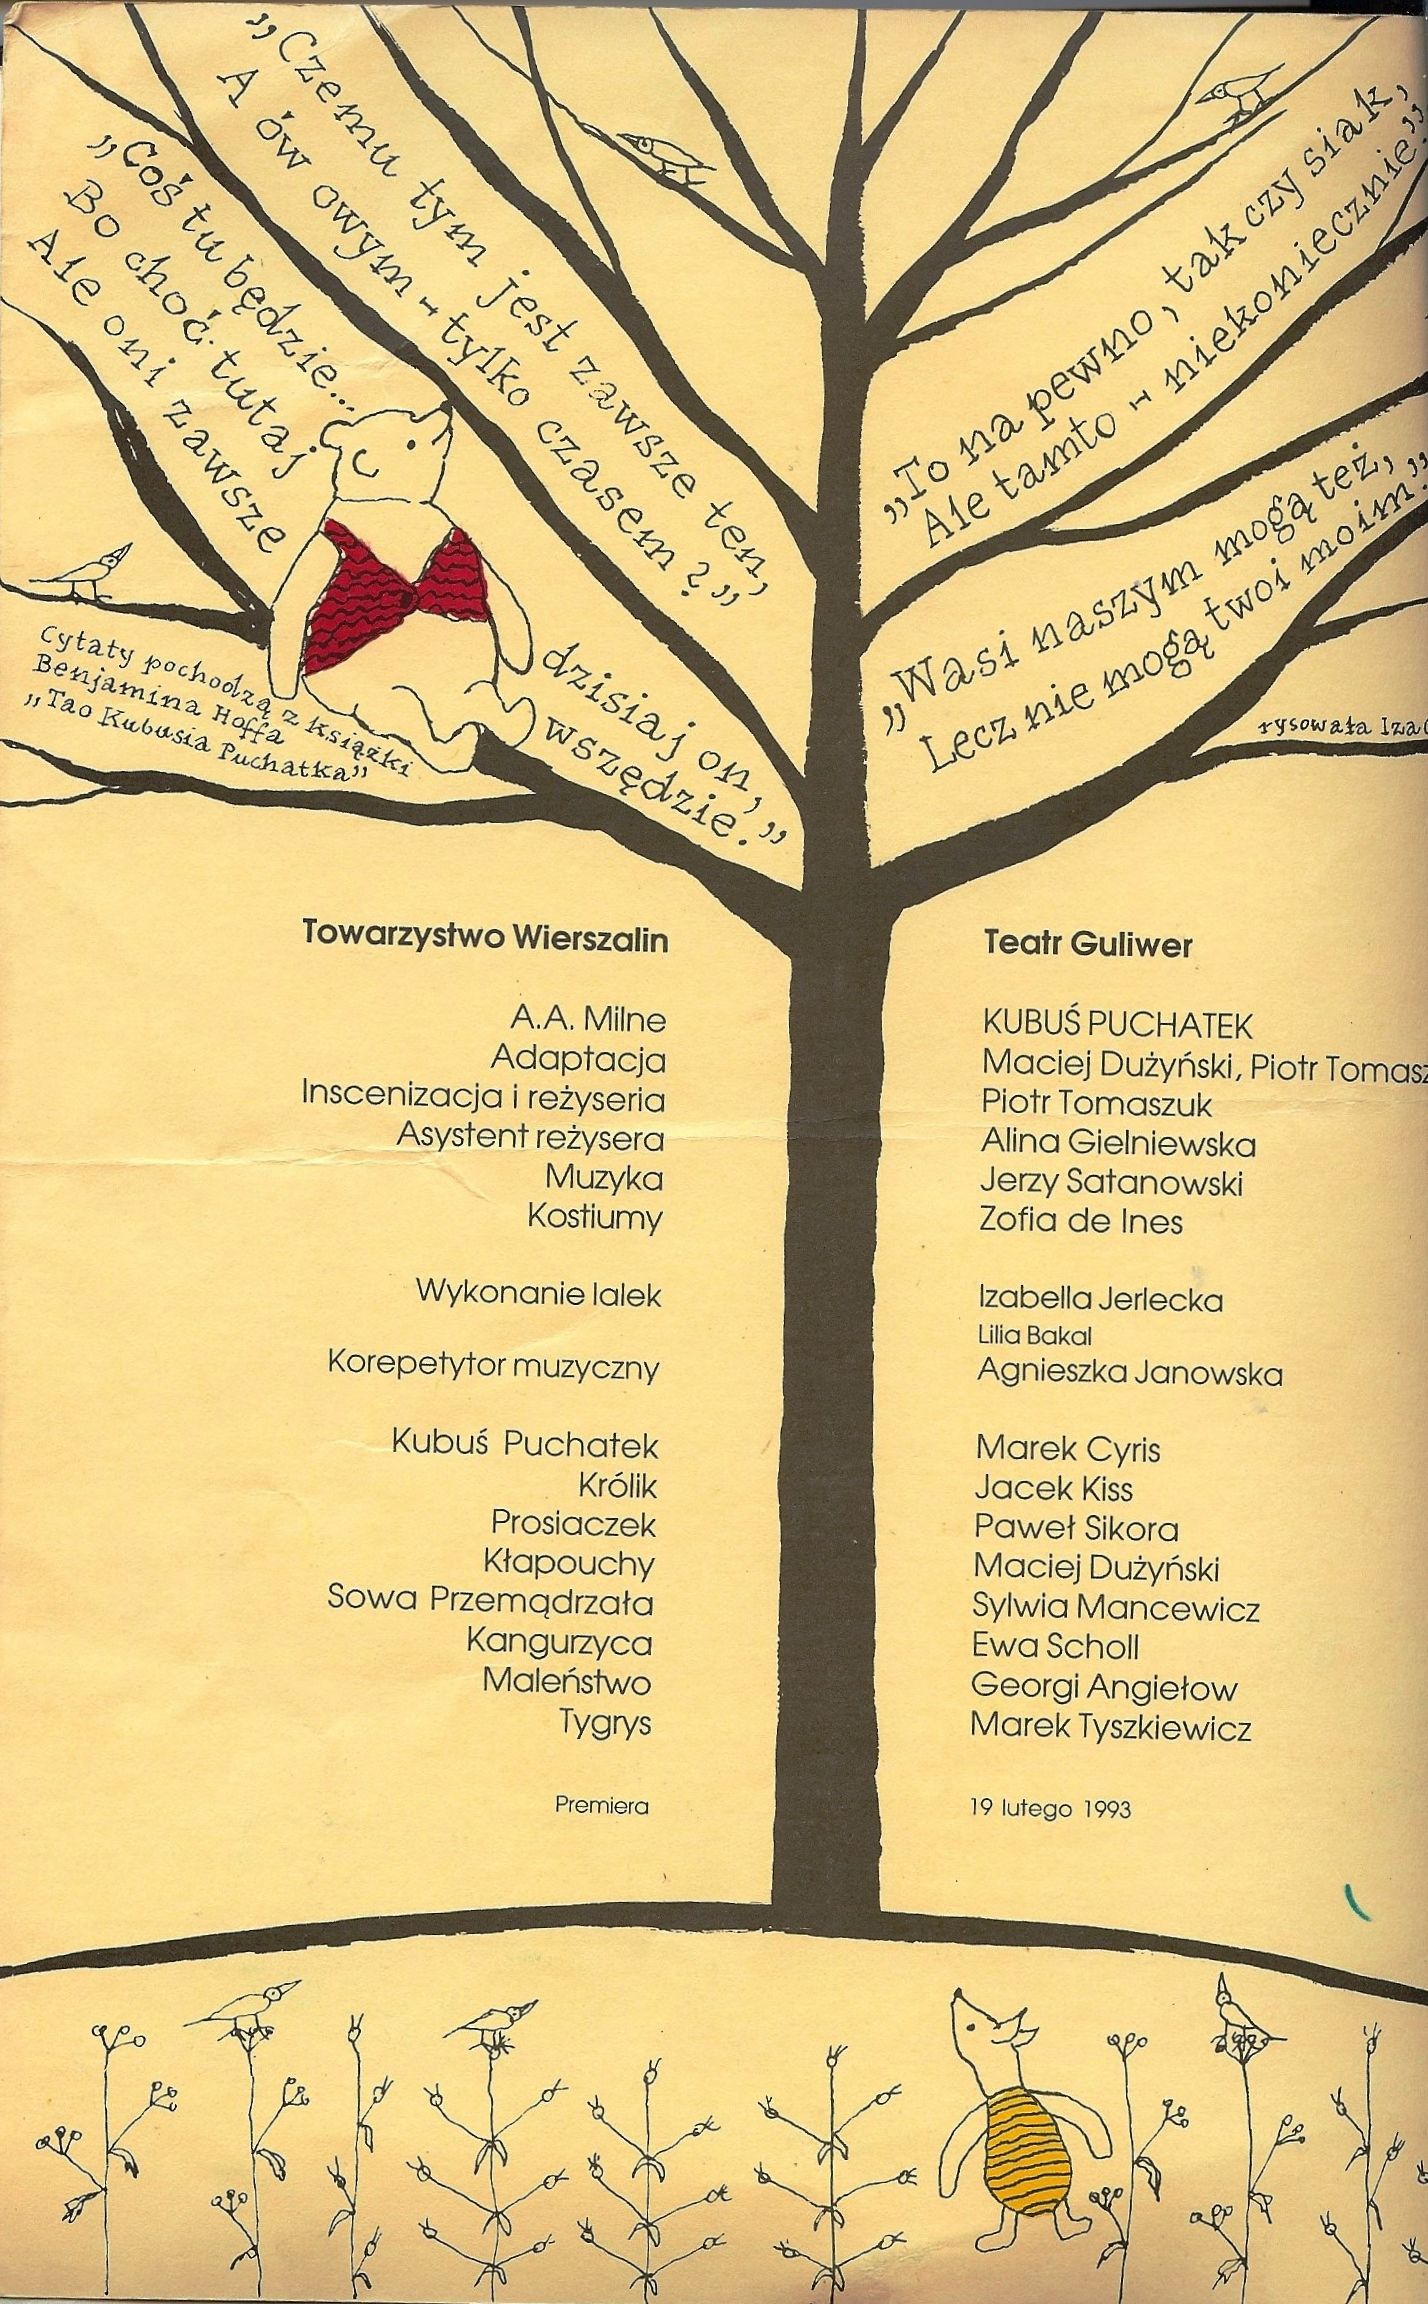 „Czemu tym jest zawsze ten,
A ów owym - tylko czasem?”
„Coś tu będzie...
Bo choć tutaj
Ale oni zawsze
dzisiaj on,
wszędzie.”
Cytaty pochodzą z książki
Benjamina Hoffa
„Tao Kubusia Puchatka”
„To na pewno, tak czy siak,
Ale tamto - niekoniecznie.”
„Wasi naszym mogą też,
Lecz nie mogą twoi moim.”
rysowała Iza
Towarzystwo Wierszalin Teatr Guliwer
A.A. Milne KUBUŚ PUCHATEK
Adaptacja Maciej Dużyński, Piotr Tomasz
Inscenizacja i reżyseria Piotr Tomaszuk
Asystent reżysera Alina Gielniewska
Muzyka Jerzy Satanowski
Kostiumy Zofia de Ines
Wykonanie lalek Izabella Jerlecka
Lilia Bakal
Korepetytor muzyczny Agnieszka Janowska
Kubuś Puchatek Marek Cyris
Królik Jacek Kiss
Prosiaczek Paweł Sikora
Kłapouchy Maciej Dużyński
Sowa Przemądrzała Sylwia Mancewicz
Kangurzyca Ewa Scholl
Maleństwo Georgi Angiełow
Tygrys Marek Tyszkiewicz
Premiera 19 lutego 1993